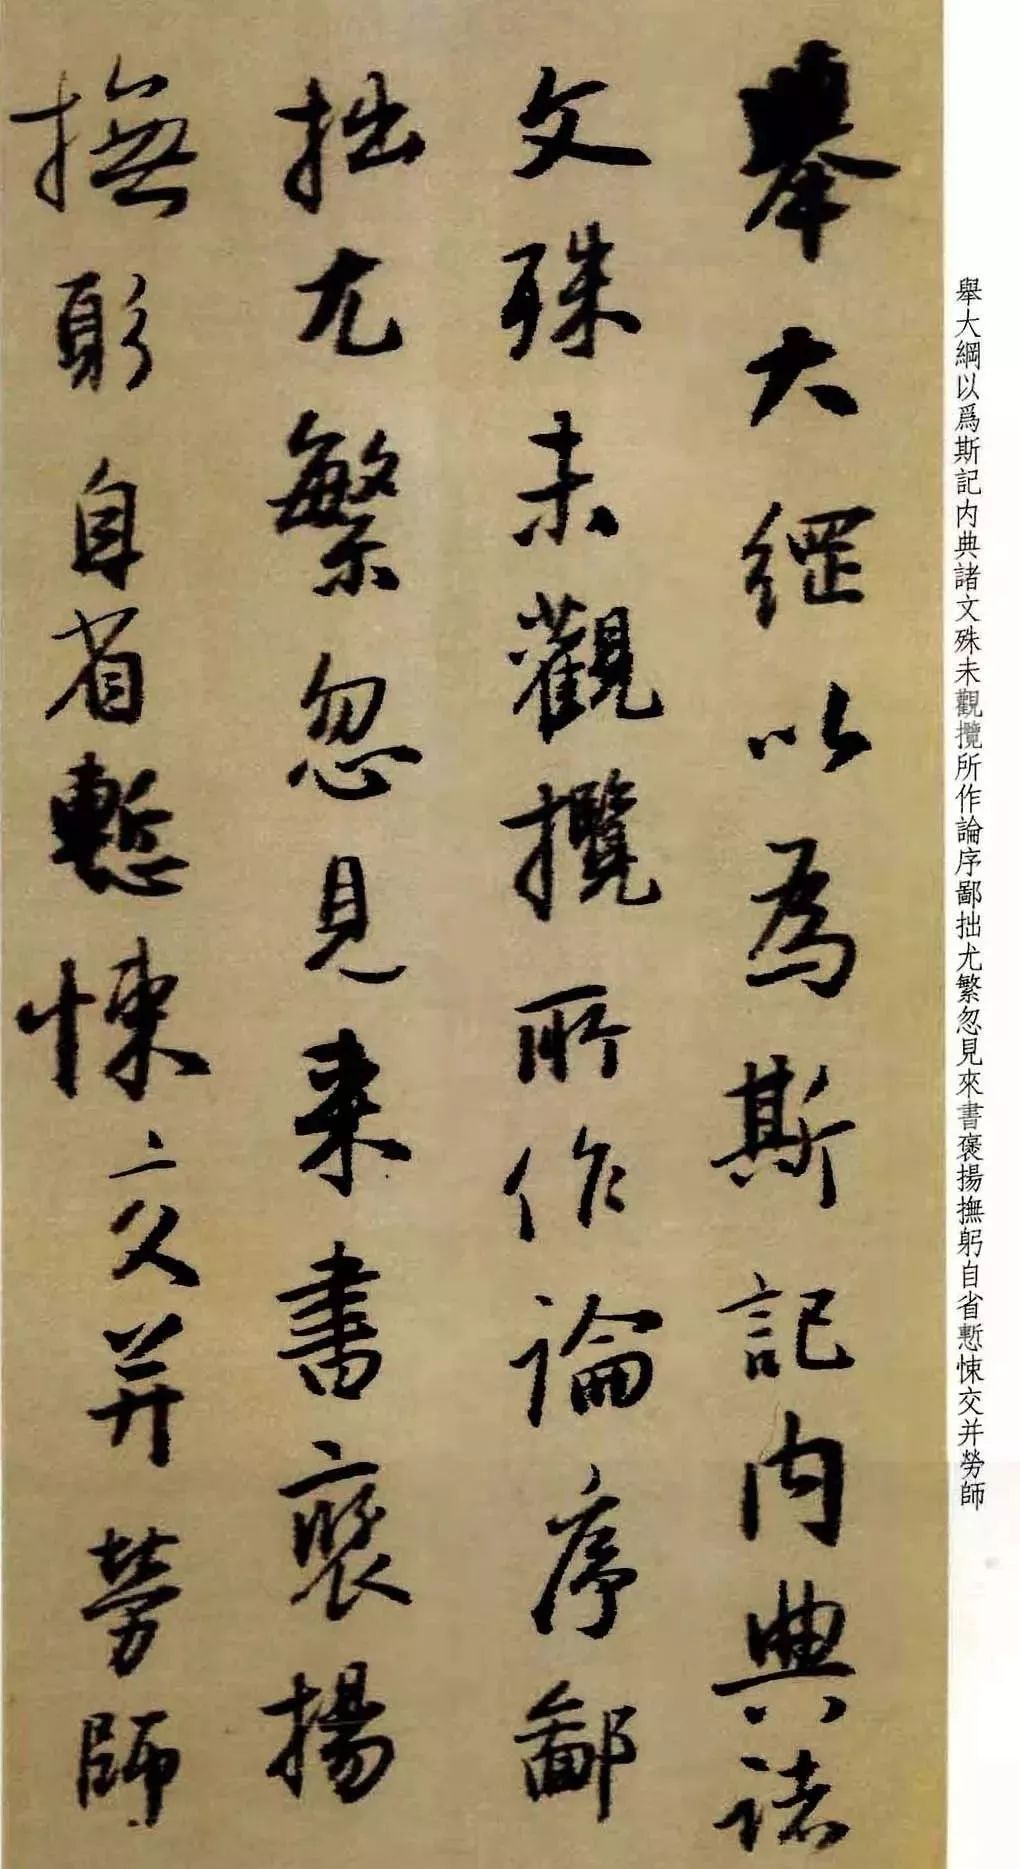 舉大綱以為斯記内典諸
文殊未觀攬所作論序鄙
拙尤繁忽見来書褒揚
撫躬自省慙悚交并勞師
舉大綱以爲斯記内典諸文殊未觀攬所作論序鄙拙尤繁忽見來書褒揚撫躬自省慙悚交并勞師